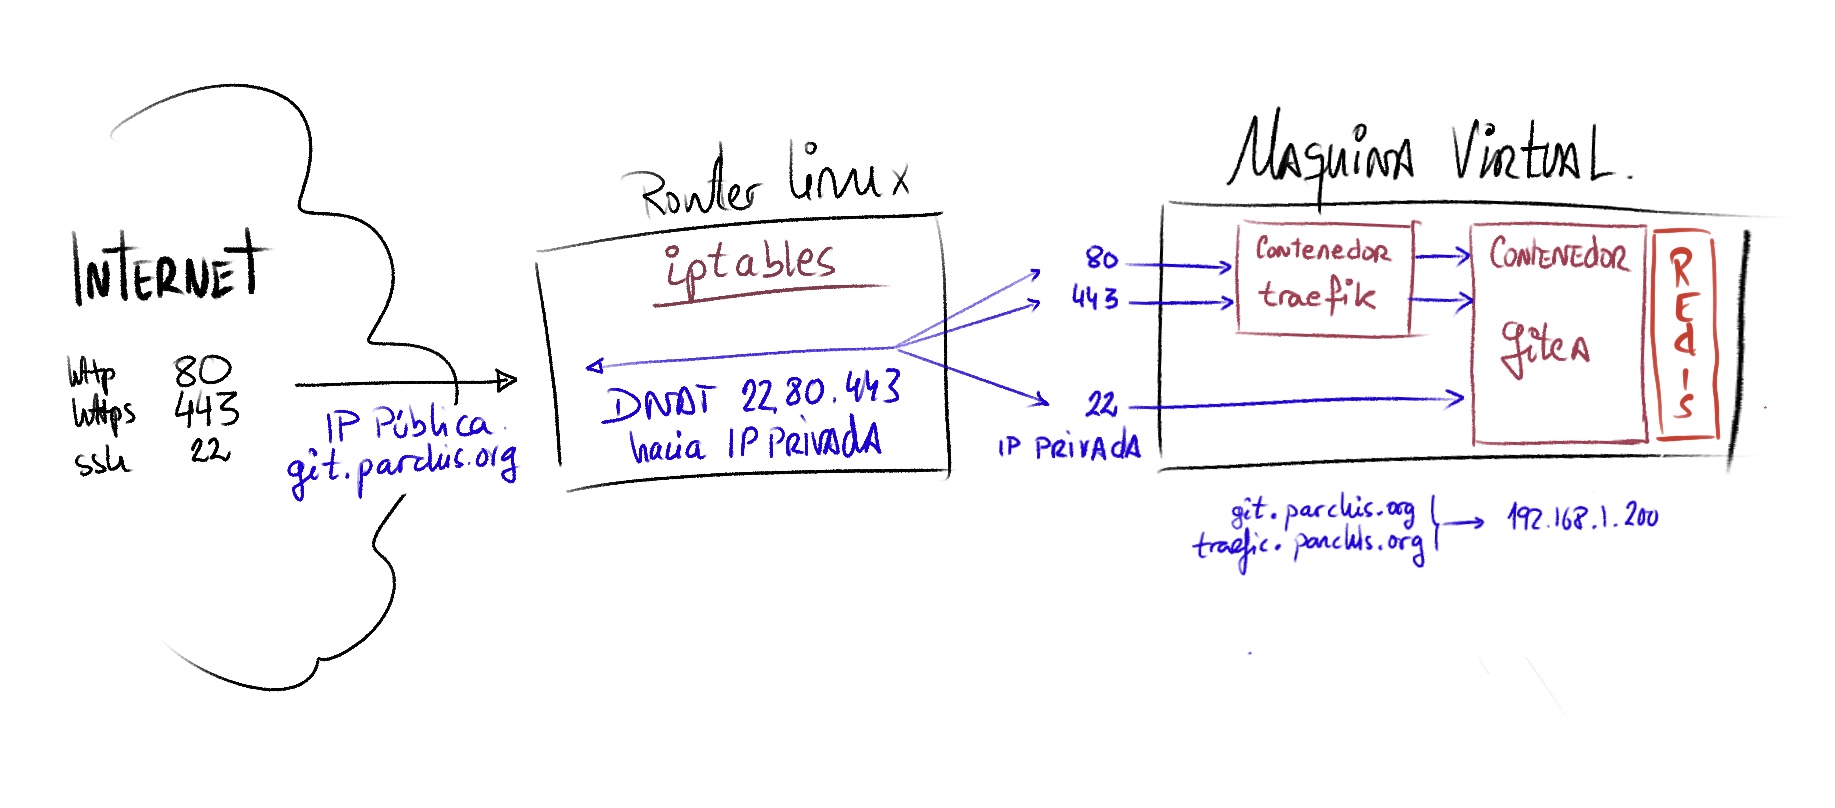 INTERNET
http 80
https 443
ssh 22
IP Pública
git.parchis.org
Router linux
iptables
DNAT 22,80.443
hacia IP PRIVADA
80
443
22
IP PRIVADA
MAQUINA VIRTUAL.
Contenedor
traefik
CONTENEDOR
gitea
REdis
git.parchis.org
traefic.parchis.org
192.168.1.200